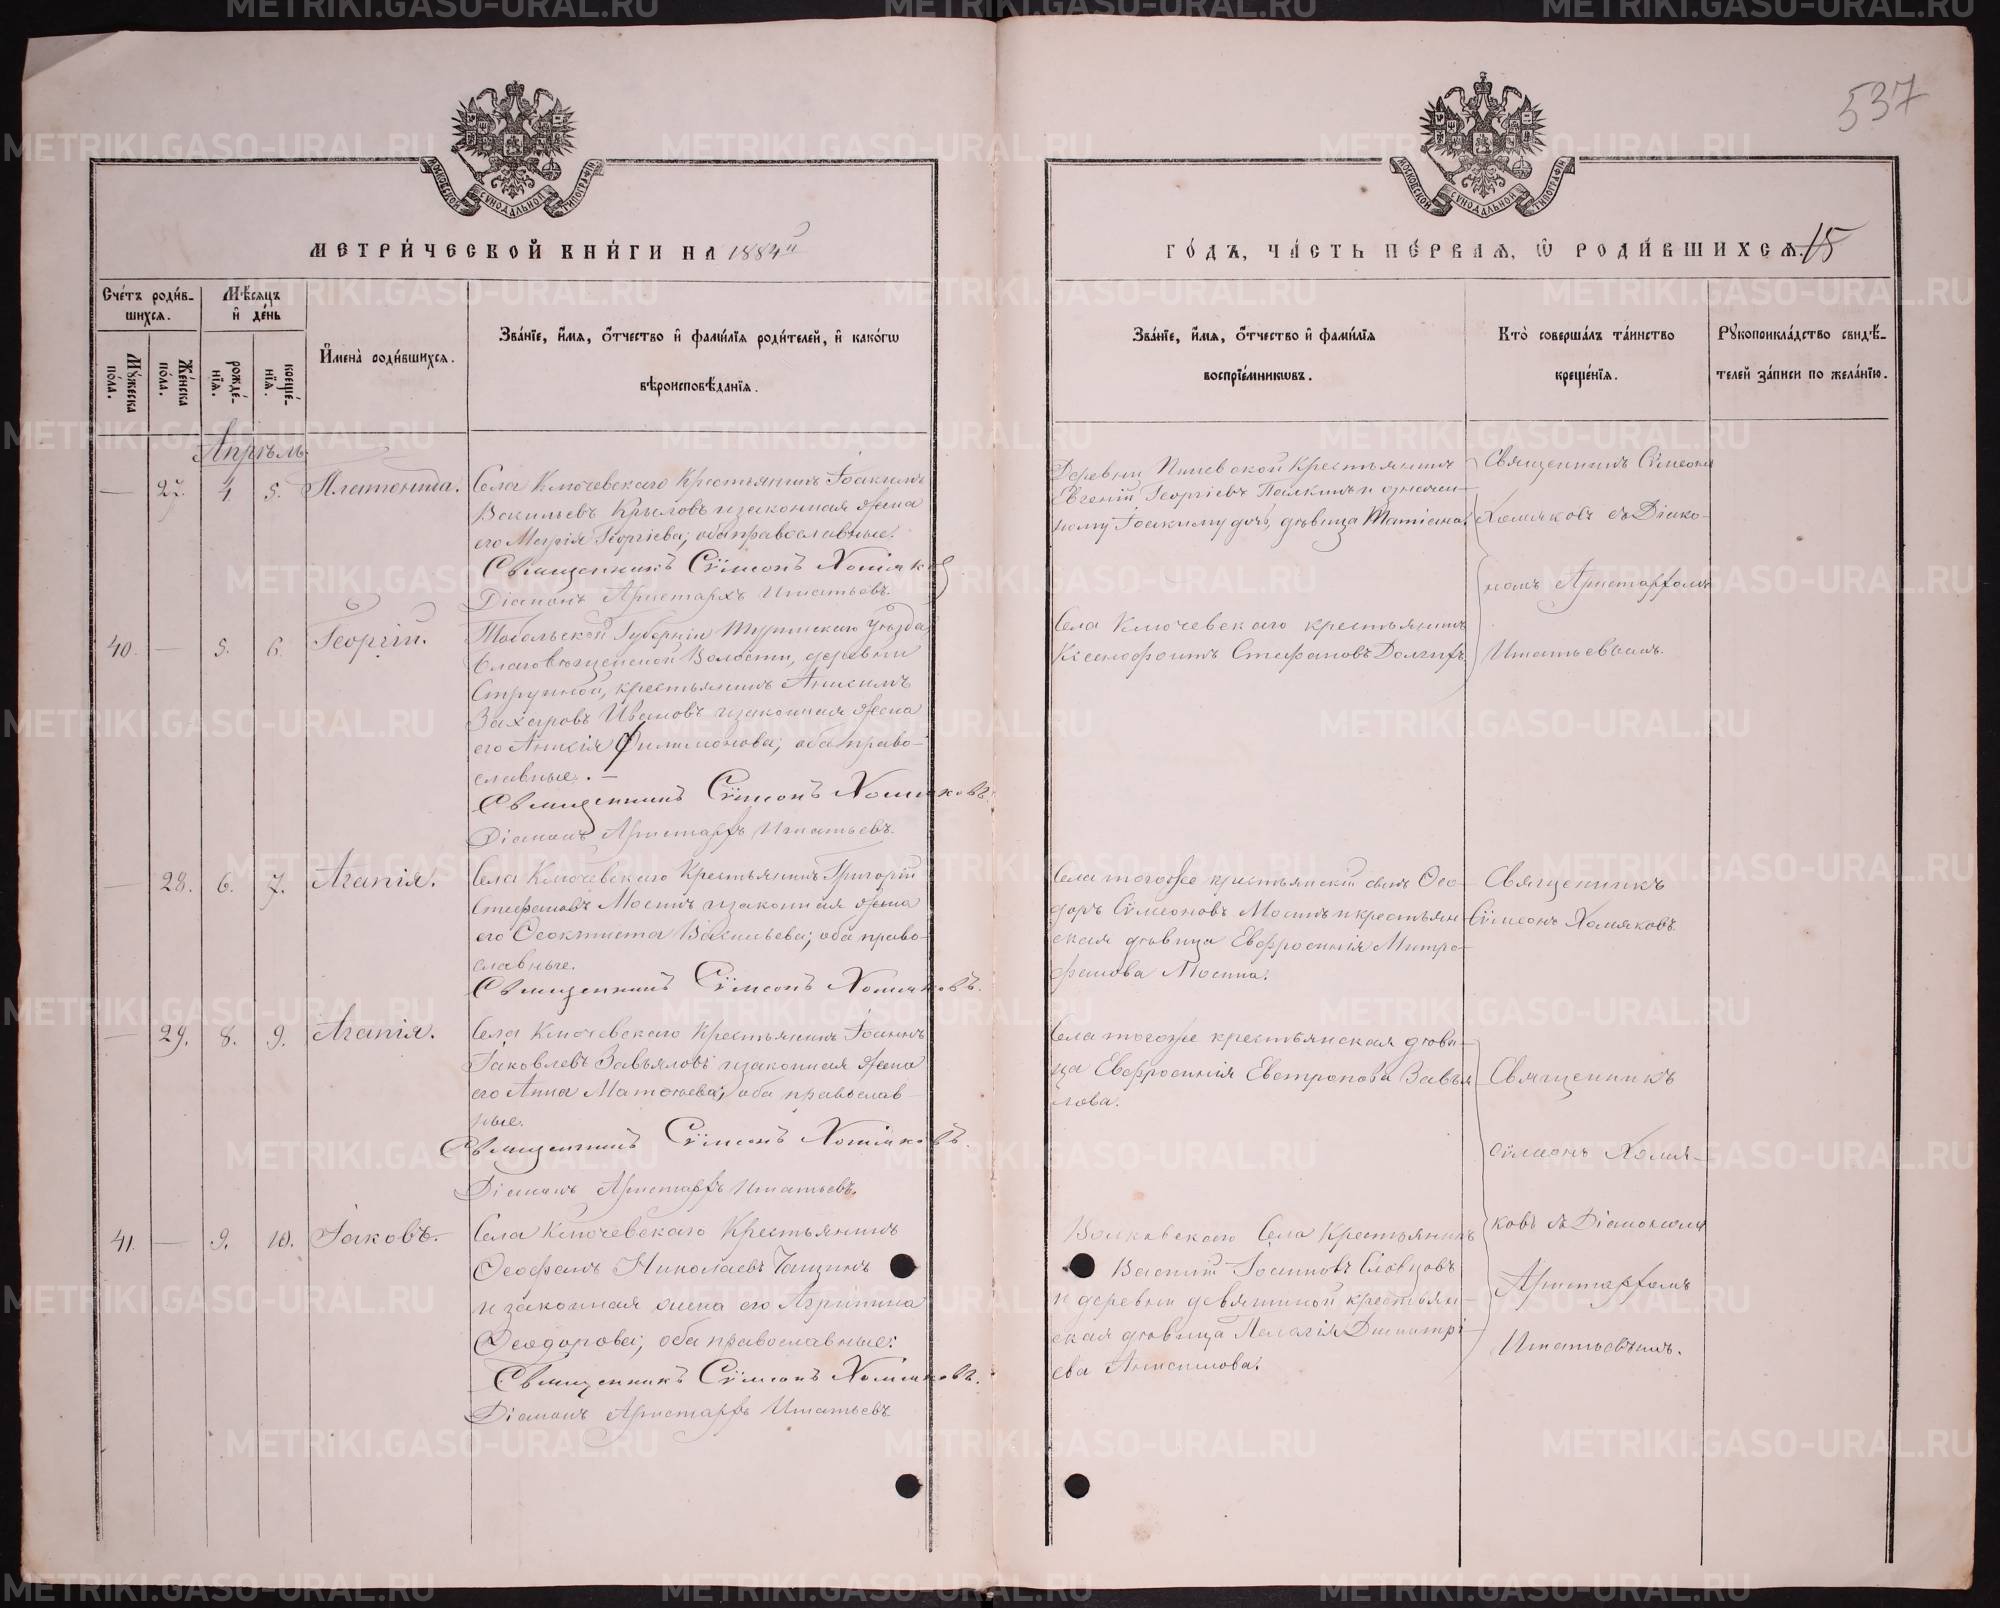 537
МОСКОВСКОЙ СУНОДАЛЬНОЙ ТИПОГРАФІИ
МОСКОВСКОЙ СУНОДАЛЬНОЙ ТИПОГРАФІИ
МЕТРИ́ЧЕСКОЙ КНИ́ГИ НА 1884й
ГО́ДЪ, ЧА́СТЬ ПЕ́РВАѦ, Ѡ РОДИ́ВШИХСѦ. 15
Сче́тъ роди́в-
шихсѧ.
Мѣ́сяцъ
и҆ де́нь
Мꙋ́жеска
по́ла.
Же́нска
по́ла.
рожде́-
нїѧ.
креще́-
нїѧ.
И҆мена̀ роди́вшихсѧ.
Зва́нїе, и҆́мѧ, о҆́тчество и҆ фами́лїѧ роди́телей, и҆ како́гѡ
вѣроисповѣ́данїѧ.
Зва́нїе, и҆́мѧ, о҆́тчество и҆ фами́лїѧ
воспрїе́мникѡвъ.
Кто̀ соверша́лъ та́инство
креще́нїѧ.
Рꙋкоприкла́дство свидѣ́-
телей за́писи по жела́нїю.
Апрѣль.
— 27. 4 5. Платонида.
Села Ключевскаго Крестьянинъ Іоакимъ
Васильевъ Крыловъ и законная жена
его Марія Георгіева; оба православные.
Священникъ Сѵмеонъ Хомяковъ
Діаконъ Аристархъ Игнатьевъ.
Деревни Крестьянинъ
Евгеній Георгіевъ Палкинъ и означен-
ному Іоакиму дочь, дѣвица Татіана.
Священникъ Сѵмеонъ
Хомяковъ съ Діако-
номъ Аристархомъ
Игнатьевымъ.
40. — 5. 6. Георгій.
Тобольской Губерніи Туринскаго Уѣзда,
Благовѣщенской Волости, деревни
крестьянинъ Анисимъ
Захаровъ Ивановъ и законная жена
его Филимонова; оба право-
славные. —
Священникъ Сѵмеонъ Хомяковъ.
Діаконъ Аристархъ Игнатьевъ.
Села Ключевскаго крестьянинъ
Ксенофонтъ Стефановъ Долгихъ
— 28. 6. 7. Агапія.
Села Ключевскаго Крестьянинъ Григорій
Стефановъ Мосинъ и законная жена
его Ѳеоктиста Васильева; оба право-
славные.
Священникъ Сѵмеонъ Хомяковъ.
Села тогоже крестьянскій сынъ Ѳео-
доръ Сѵмеоновъ Мосинъ и крестьян-
ская дѣвица Евфросинія Митро-
фанова Мосина.
Священникъ
Сѵмеонъ Хомяковъ
— 29. 8. 9. Агапія.
Села Ключевскаго Крестьянинъ Іоаннъ
Іаковлевъ Завьяловъ и законная жена
его Анна Матѳеева; оба православ-
ные.
Священникъ Сѵмеонъ Хомяковъ.
Діаконъ Аристархъ Игнатьевъ.
Села тогоже крестьянская дѣви-
ца Евфросинія Евтропова Завья
лова.
Священникъ
Сѵмеонъ Хомя-
ковъ съ Діакономъ
Аристархомъ
Игнатьевымъ.
41. — 9. 10. Іаковъ.
Села Ключевскаго Крестьянинъ
Ѳеофанъ Николаевъ
и законная жена его Агрипина
Ѳеодорова; оба православные.
Священникъ Сѵмеонъ Хомяковъ.
Діаконъ Аристархъ Игнатьевъ
Волковскаго Села Крестьянинъ
Василій Іоанновъ Словцовъ
и деревни Девяшиной крестьян-
ская дѣвица Пелагія Димитрі-
ева Анисимова.
METRIKI.GASO-URAL.RU